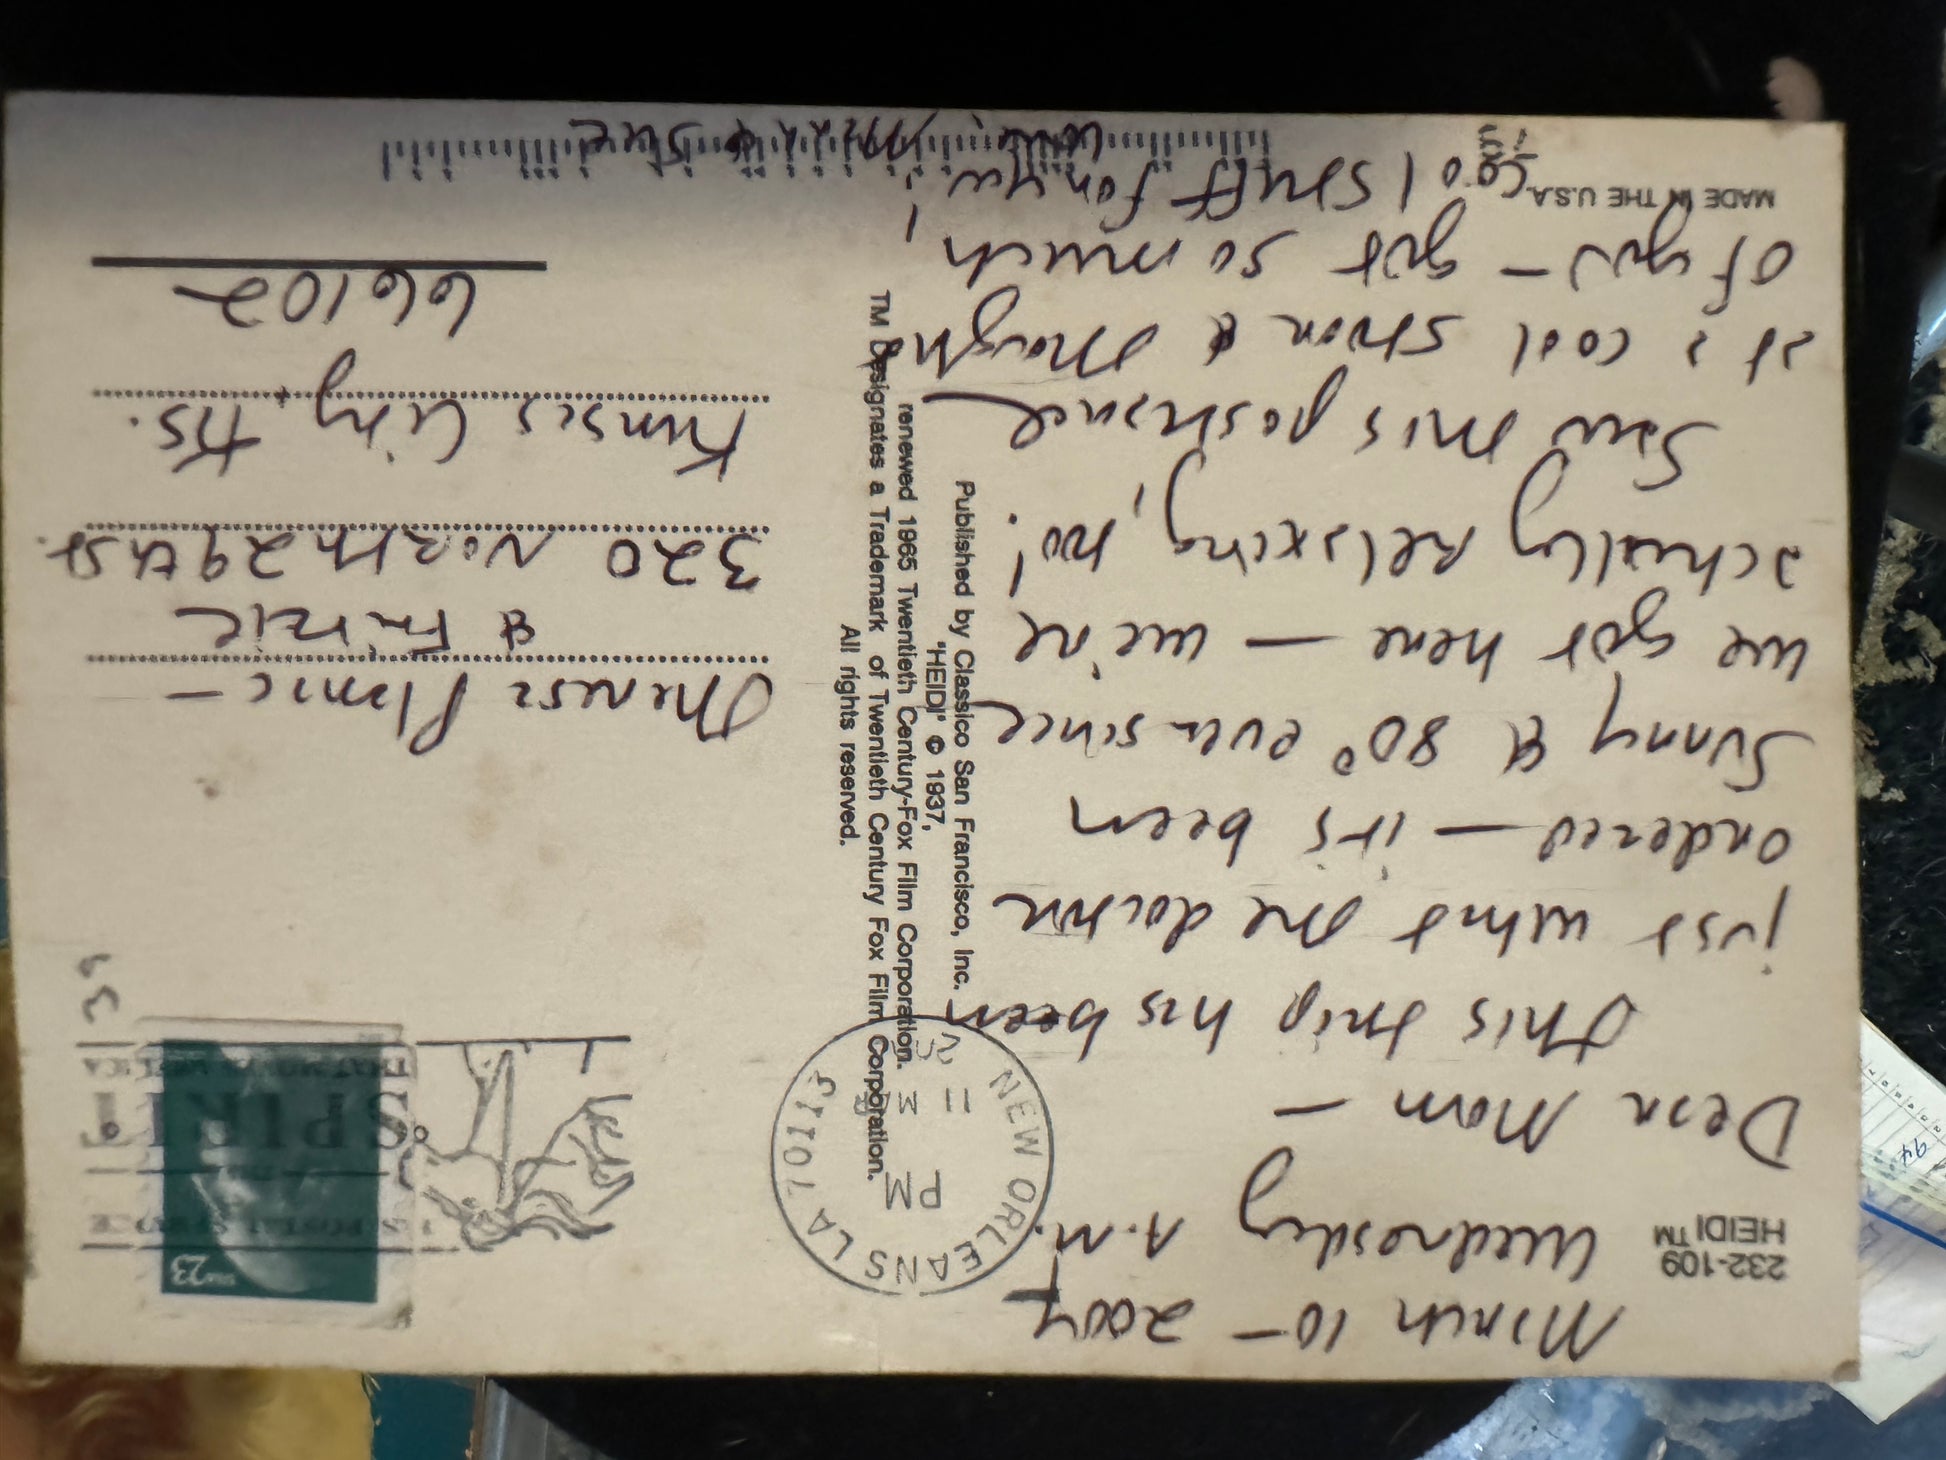 232-109
HEIDI™
March 10 - 2004
Wednesday A.M.
Dear Mom -
This trip has been
just what the doctor
ordered - it's been
Sunny & 80° ever since
we got here - we're
actually relaxing, too!
Saw this postcard
at a cool store & thought
of you - got so much
cool stuff for you!
Love, Max & Sue
MADE IN THE U.S.A.
Published by Classico San Francisco, Inc.
"HEIDI" © 1937,
renewed 1965 Twentieth Century-Fox Film Corporation.
TM Designates a Trademark of Twentieth Century Fox Film Corporation.
All rights reserved.
NEW ORLEANS LA 70113
PM
11 MAR
USA 23
U.S. POSTAL SERVICE
SPIRIT
THAT MOVES AMERICA
39
Theresa Planic -
& Franzie
320 North 29th St.
Kansas City, KS.
66102